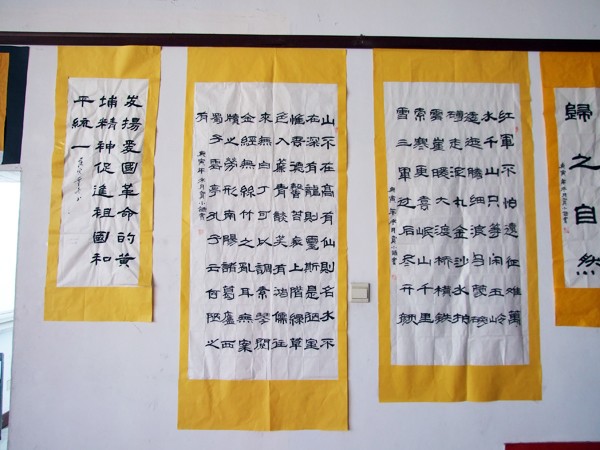 歸之自然
庚寅年
红軍不怕遠征难萬
水千山只等闲五岭
逶迤腾细浪乌蒙磅
礴走泥丸金沙水拍
雲崖暖大渡桥横铁
索寒更喜岷山千里
雪三軍过后尽开颜
庚寅年
山不在高有仙則名水不
在深有龍則靈斯是陋室
惟吾德馨苔痕上階緑草
色入簾青談笑有鴻儒往
來無白丁可以調素琴閱
金經無絲竹之亂耳無案
牘之勞形南陽諸葛廬西
蜀子雲亭孔子云何陋之
有
庚寅年
发揚愛國革命的黄
埔精神促進祖國和
平統一